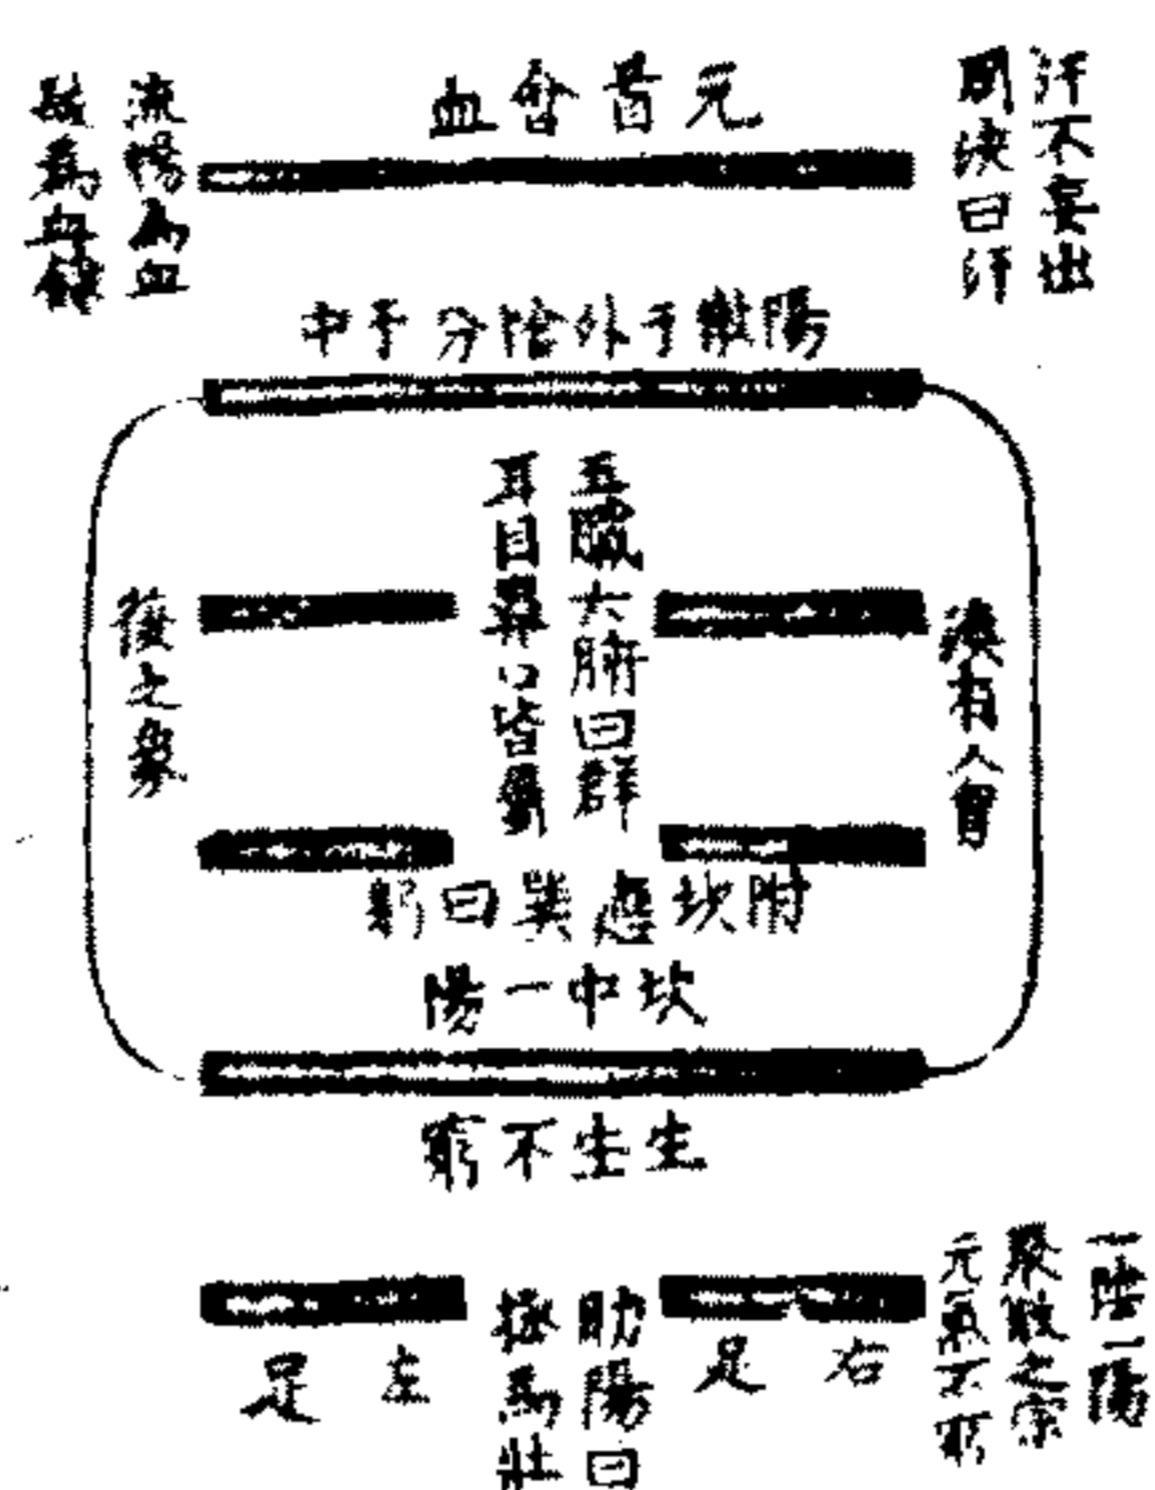 汗不妄出
周浹曰汗
元會血
流暢為血
髮為血餘
陽散于外陰分于中
渙有人胷
五臟六腑曰群
耳目鼻口皆屬
腹之象
附坎應巽曰躬
坎中一陽
生生不窮
一陰一陽
聚散之宗
元氣不窮
右足
助陽曰
拯馬壯
左足